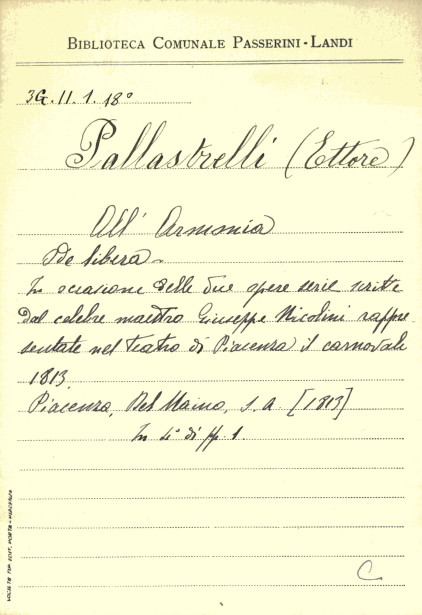 BIBLIOTECA COMUNALE PASSERINI-LANDI
3G.II.1.18°
Pallastrelli (Ettore)
All' Armonia
Ode libera -
In occasione delle due opere serie scritte
dal celebre maestro Giuseppe Nicolini rappre
sentate nel teatro di Piacenza il carnovale
1813.
Piacenza, Del Maino, s.a. [1813]
In 4° di pp. 1.
C